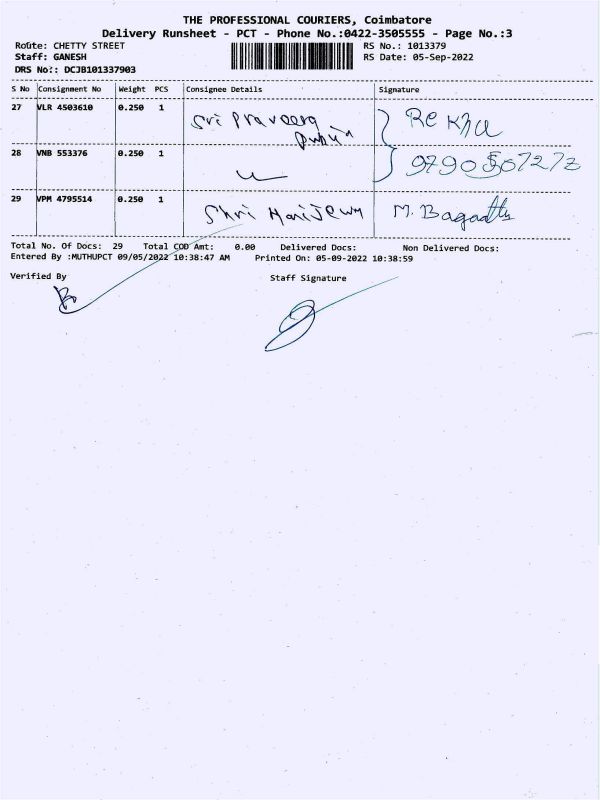 THE PROFESSIONAL COURIERS, Coimbatore
Delivery Runsheet - PCT - Phone No.:0422-3505555 - Page No.:3
Route: CHETTY STREET RS No.: 1013379
Staff: GANESH RS Date: 05-Sep-2022
DRS No:: DCJB101337903
S No Consignment No Weight PCS Consignee Details Signature
27 VLR 4503610 0.250 1 Sri Praveera
28 VNB 553376 0.250 1
29 VPM 4795514 0.250 1 Shri
Total No. Of Docs: 29 Total COD Amt: 0.00 Delivered Docs: Non Delivered Docs:
Entered By :MUTHUPCT 09/05/2022 10:38:47 AM Printed On: 05-09-2022 10:38:59
Verified By Staff Signature